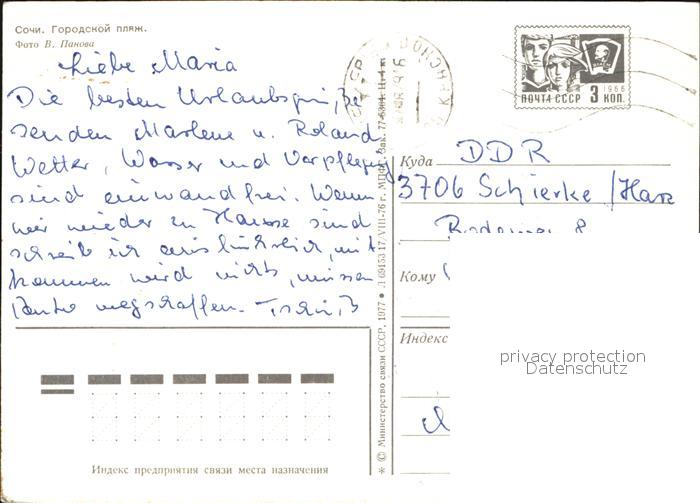 Сочи. Городской пляж.
Фото В. Панова
Liebe Maria
Die besten Urlaubsgrüße
senden Marlene u. Roland
Wetter, Wasser und Verpflegung
sind einwandfrei. Wenn
wir wieder zu Hause sind
schreib ich ausführlich, mit
kommen wird nichts, müssen
wegschaffen. Tschüß
ПОЧТА СССР 3 КОП. 1966
Куда DDR
3706 Schierke / Harz
8
Кому
Индекс
privacy protection
Datenschutz
Индекс предприятия связи места назначения
* © Министерство связи СССР, 1977 • Л 69153 17/VIII-76 г. МПФГ. Зак. 77-6304. Ц. 4 к.